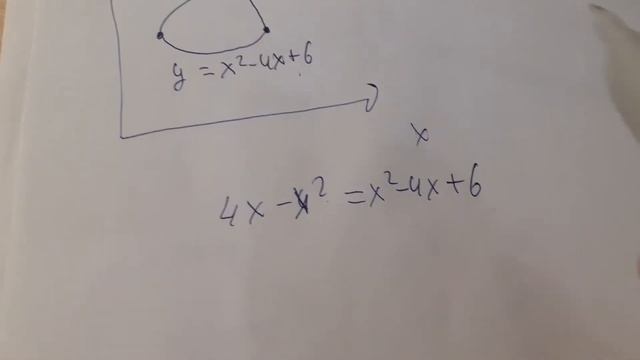 y = x²-4x+6
x
4x - x² = x²-4x+6